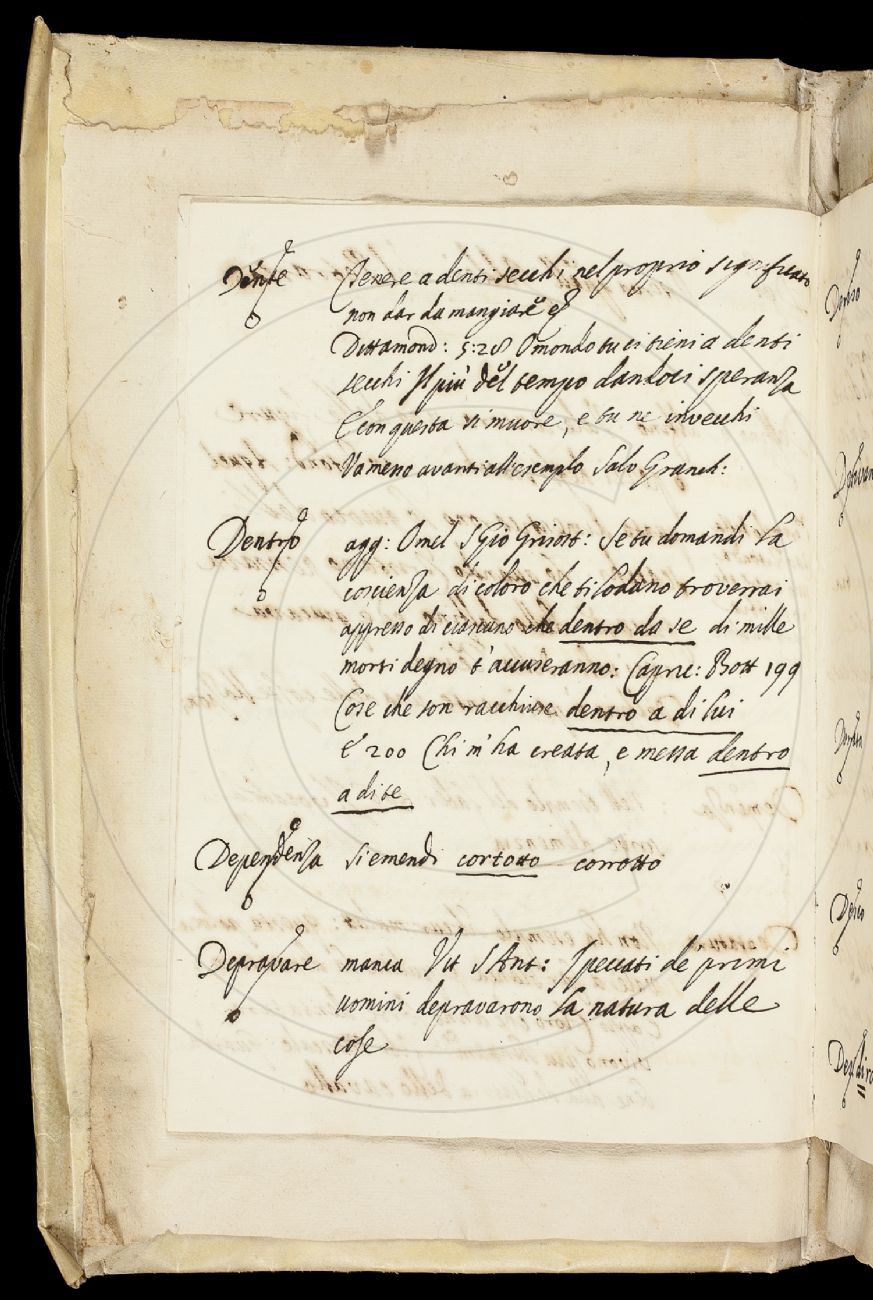 Dente Tenere a denti secchi nel proprio significato
non dar da mangiare
Dittamond: 5:28 O mondo tu ci tieni a denti
secchi Il più del tempo dandoci speranza
E con questa si muore, e tu ne invecchi
Va messo avanti all'esemplo Salv Granch:
Dentro agg: Omel S Gio Grisost: Se tu domandi la
coscienza di coloro che ti lodano troverrai
appresso di ciascuno che dentro da se di mille
morti degno t'accuseranno: Capric: Bott 199
Cose che son racchiuse dentro a di lui
E 200 Chi m'ha creata, e messa dentro
a di te
Dependenza si emendi cortotto corrotto
Depravare manca Vit S Ant: I peccati de primi
uomini depravarono la natura delle
cose
Deriso
Deserto
Desco